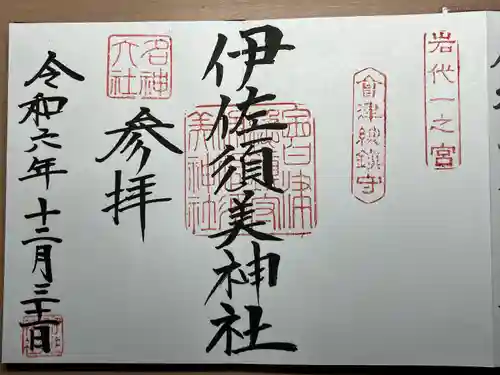 岩代一之宮
會津総鎮守
伊佐須美神社
名神
大社
参拝
令和六年十二月三十一日